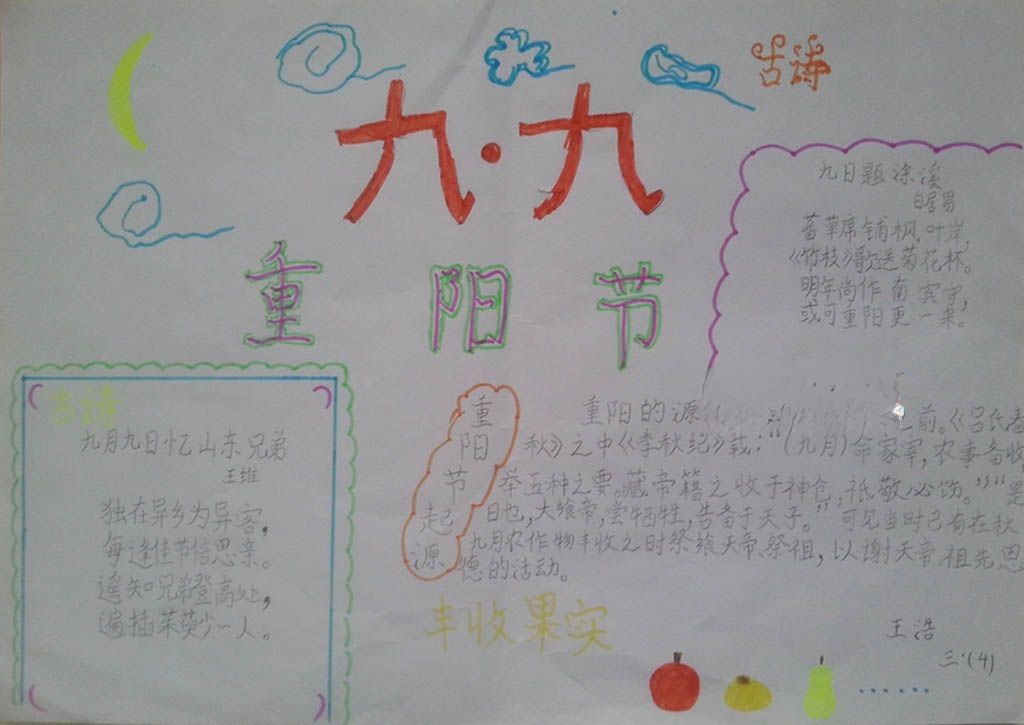 古诗
九·九
重阳节
九日题涂溪
白居易
蕃草席铺枫叶岸,
《竹枝》歌送菊花杯。
明年尚作南宾守,
或可重阳更一来。
古诗
九月九日忆山东兄弟
王维
独在异乡为异客,
每逢佳节信思亲。
遥知兄弟登高处,
遍插茱萸少一人。
重阳节起源
重阳的源 前。《吕氏春
秋》之中《季秋纪》载:“(九月)命家宰,农事备收
举五种之要。藏帝籍之收于神仓,祗敬必饬。”“是
日也,大飨帝,尝牺牲,告备于天子。”可见当时已有在秋
九月农作物丰收之时祭飨天帝、祭祖,以谢天帝、祖先恩
德的活动。
丰收果实
王浩
三·(4)